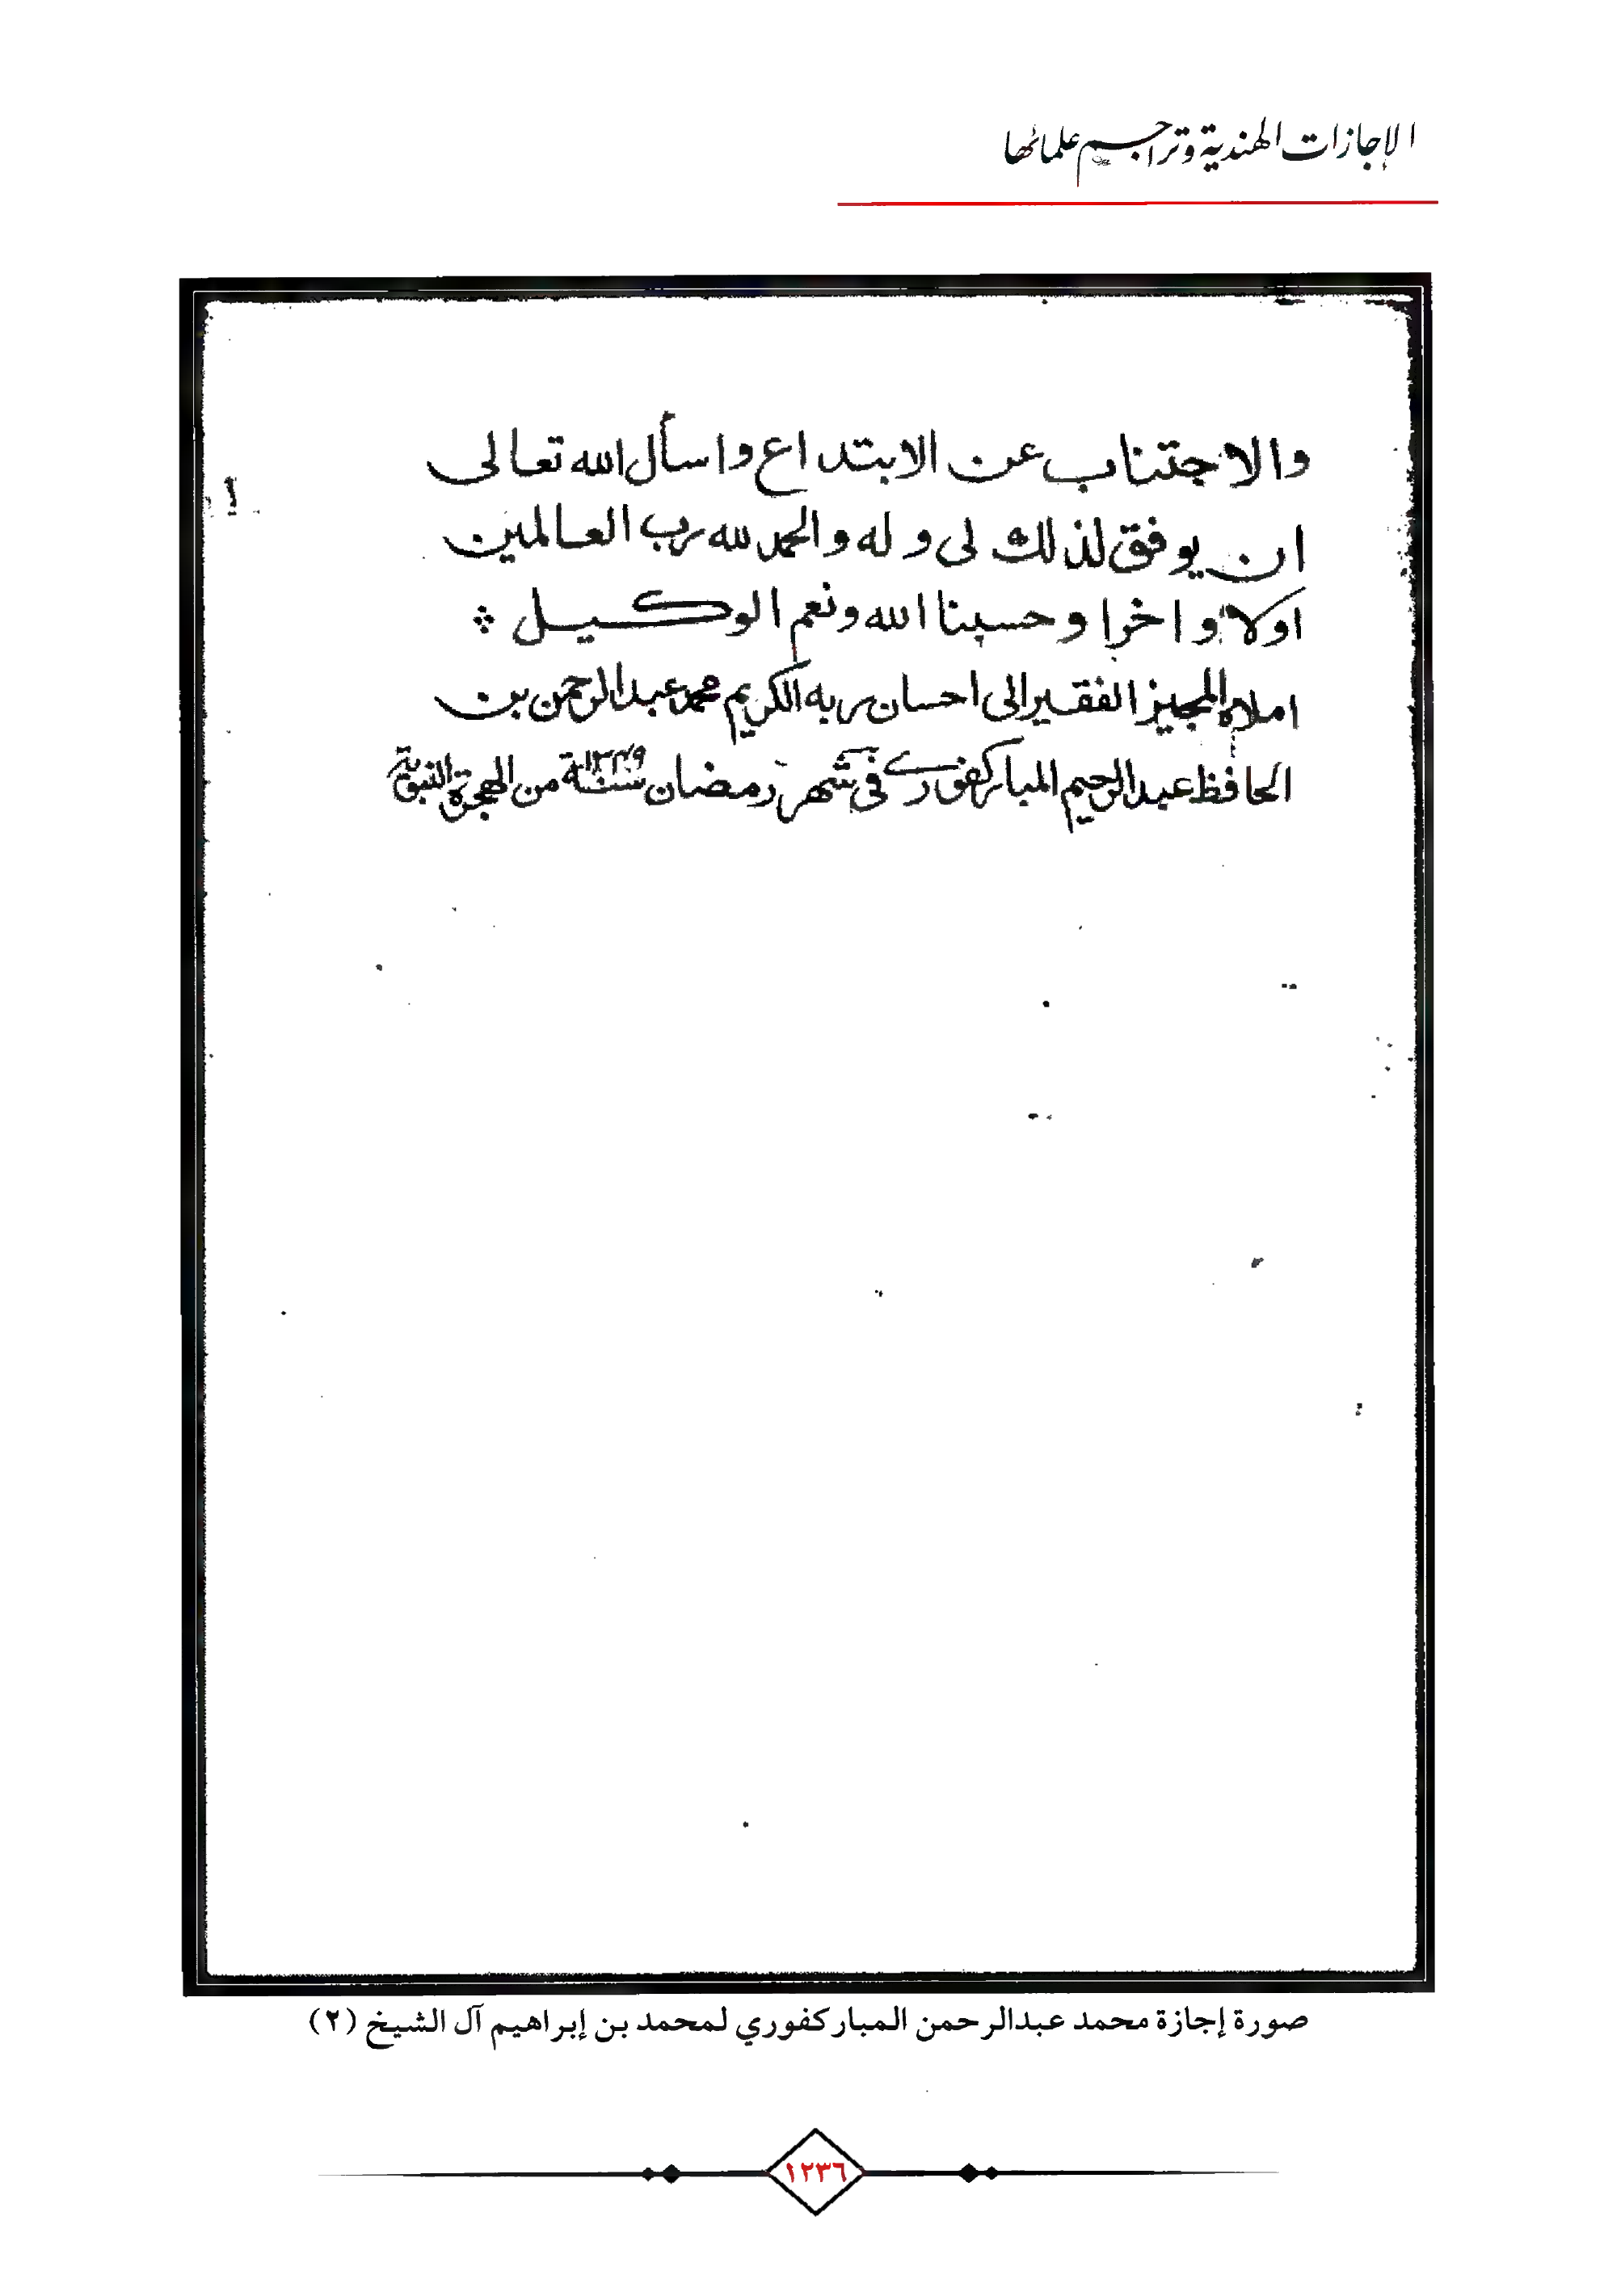 الإجازات الهندية وتراجم علمائها
والاجتناب عن الابتداع واسأل الله تعالى
ان يوفق لذلك لى وله والحمد لله رب العالمين
اولا واخرا وحسبنا الله ونعم الوكيل
املاه المجيز الفقير الى احسان ربه الكريم محمد عبد الرحمن بن
الحافظ عبد الرحيم المباركفورى فى شهر رمضان سنة من الهجرة النبوية
صورة إجازة محمد عبدالرحمن المباركفوري لمحمد بن إبراهيم آل الشيخ (٢)
١٢٣٦